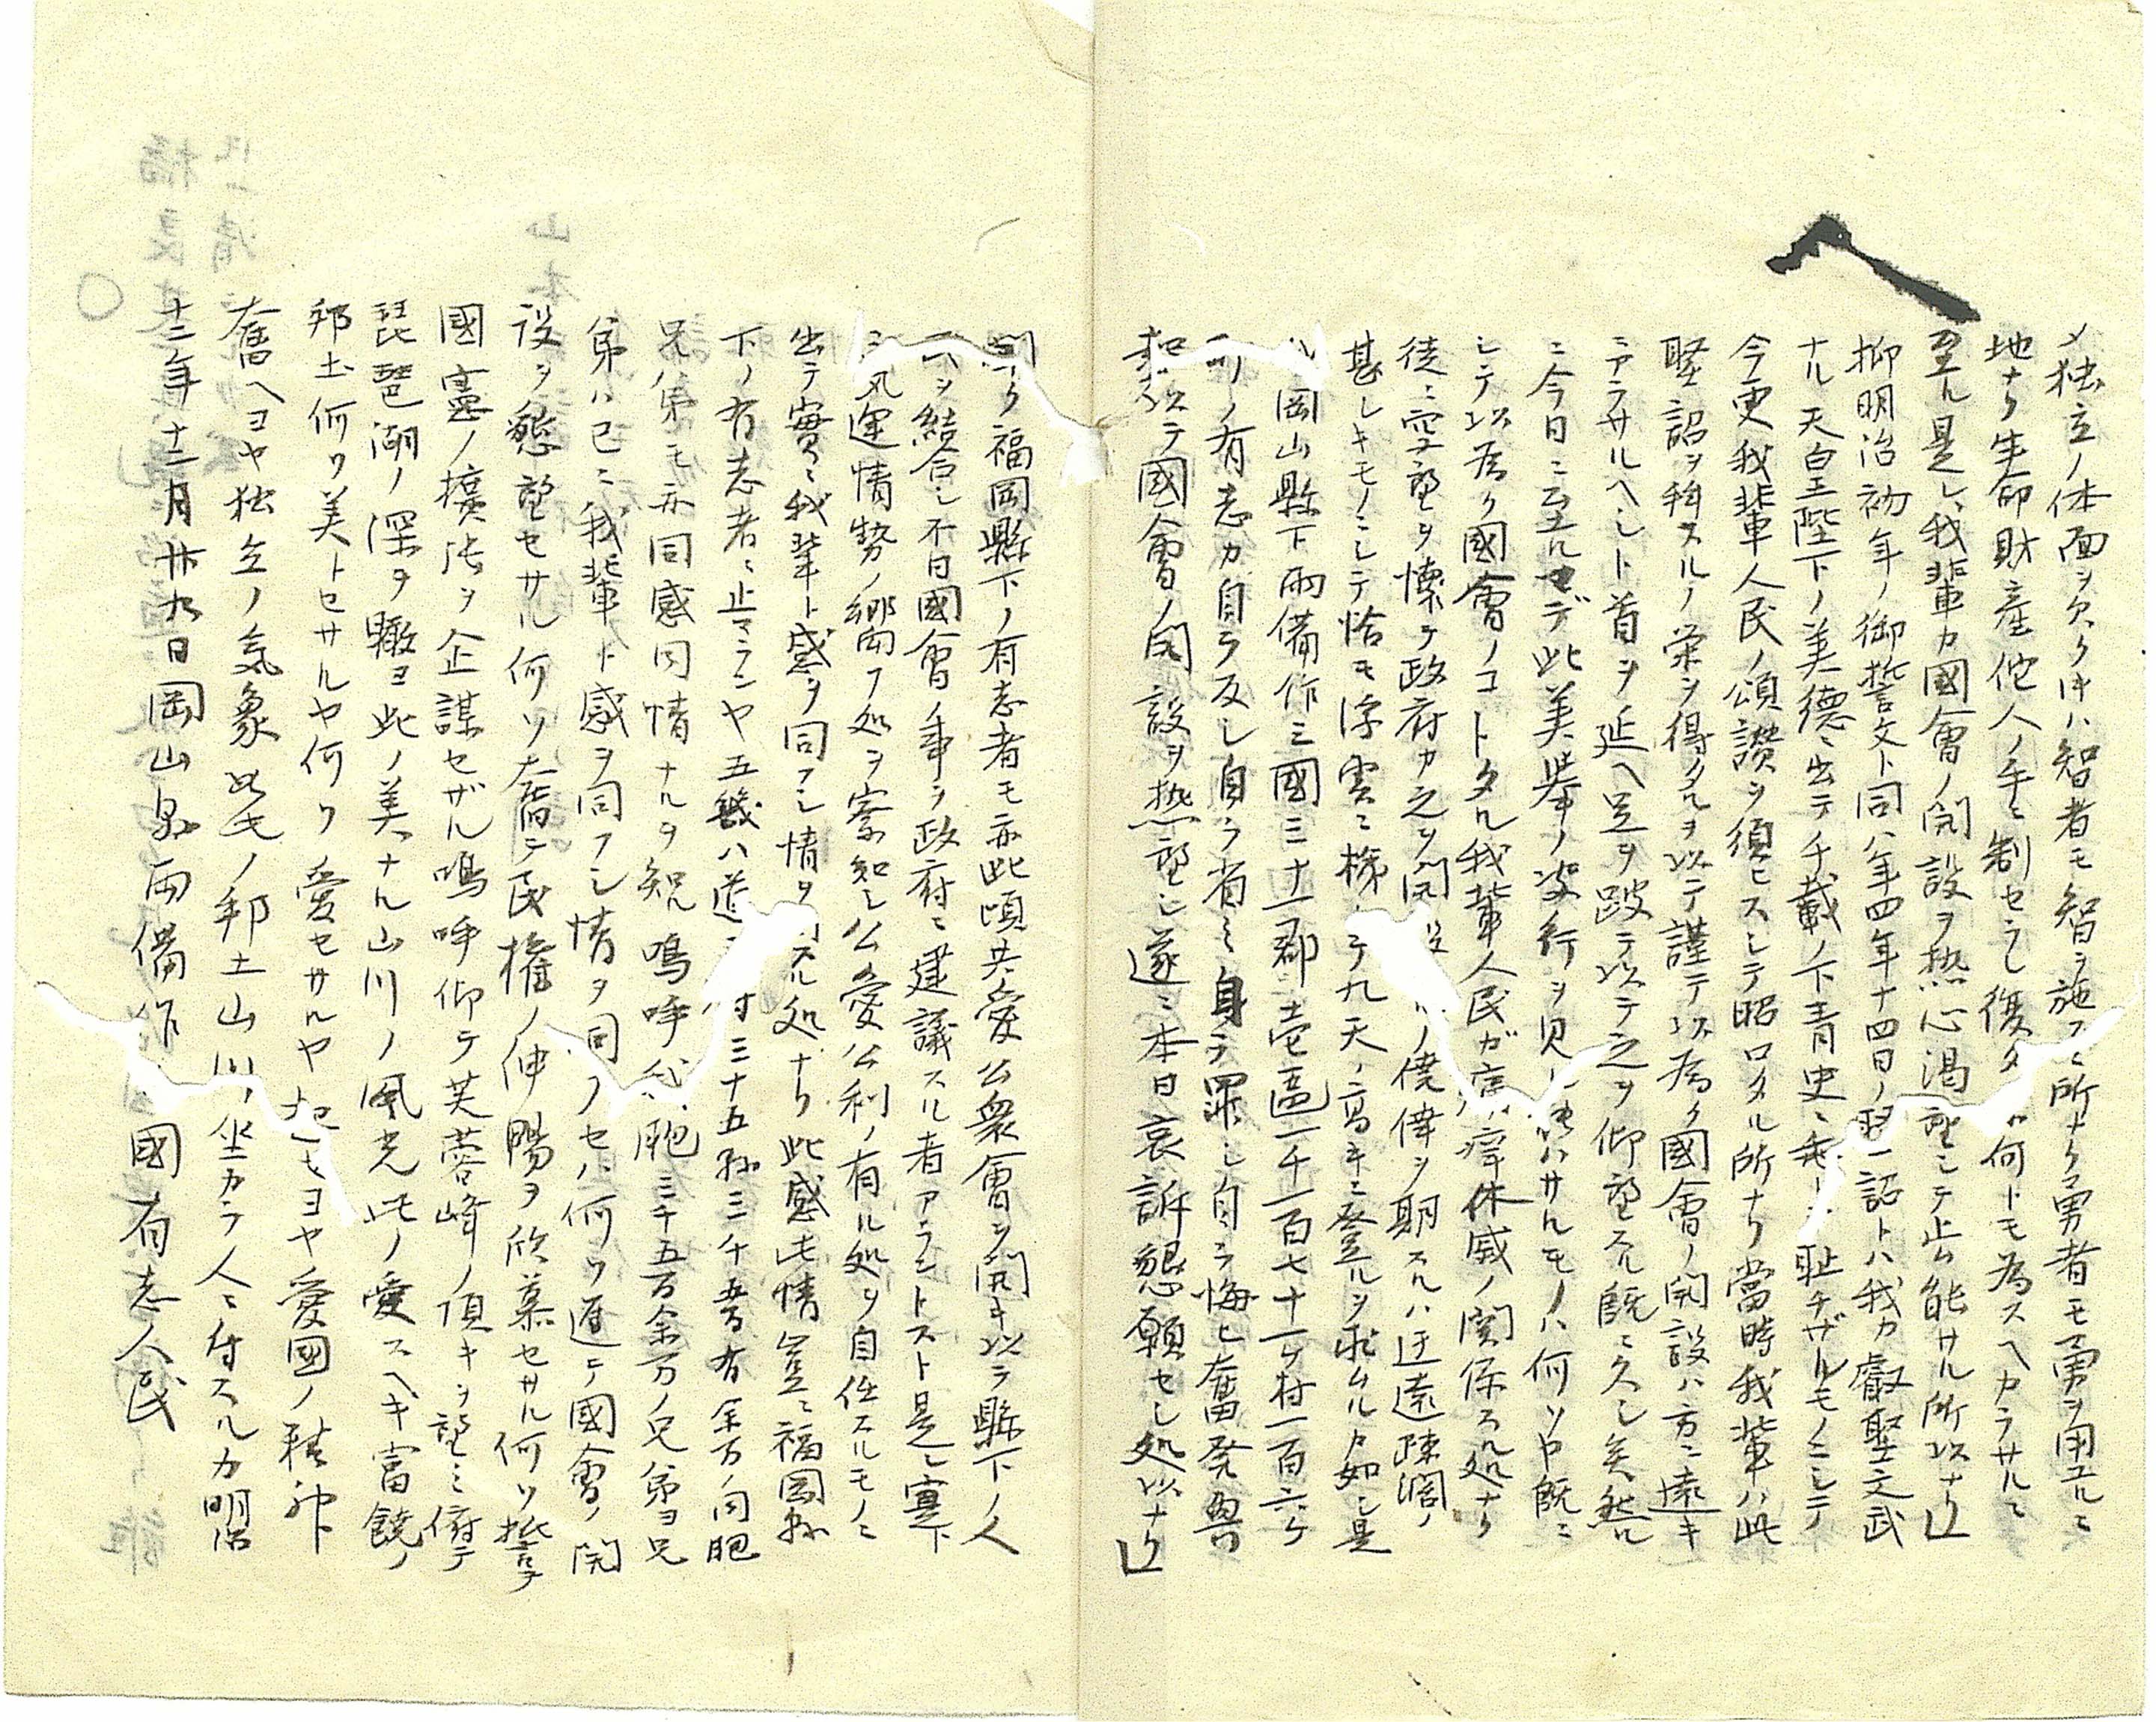 メ独立ノ体面ヲ欠クトキハ智者モ智ヲ施スニ所ナク勇者モ勇ヲ用ユルニ
地ナク生命財産他人ノ手ニ制セラレ復タ 何トモ為スヘカラサルニ
至ル是レ我輩カ國會ノ開設ヲ熱心渇望シテ止ム能サル所以ナリ」
抑明治初年ノ御誓文ト同八年四年十四日ノ聖詔トハ我カ叡聖文武
ナル天皇陛下ノ美徳ニ出テ千載ノ下青史ニ 耻チザルモノニシテ
今更我輩人民ノ頌讃ヲ須ヒスシテ昭ロタル所ナリ當時我輩ハ此
聖詔ヲ拜スルノ栄ヲ得タルヲ以テ謹テ以為ク國會ノ開設ハ方ニ遠キ
ニアラサルヘシト首ヲ延ヘ足ヲ跂テ以テ之ヲ仰望スル既ニ久シ矣然ル
ニ今日ニ至ルマデ此美挙ノ施行ヲ見 ハサルモノハ何ソヤ既ニ
シテ以為ク國會ノコトタル我輩人民ガ痛痒休戚ノ関係スル処ナリ
徒ニ空望ヲ懐テ政府カ之ヲ開設 ノ僥倖ヲ期スルハ迂遠疎濶ノ
甚シキモノニシテ恰モ浮雲ニ梯シテ九天ノ高キニ登ルヲ求ムルカ如シ是
岡山縣下両備作三國三十一郡壱區一千一百七十一ケ村一百六ケ
町ノ有志カ自ラ反シ自ラ省ミ身ヲ罪シ自ラ悔ヒ奮発興
起以テ國會ノ開設ヲ熱望シ遂ニ本日哀訴懇願セシ処以ナリ」
聞ク福岡縣下ノ有志者モ亦此頃共愛公衆會ヲ開キ以テ縣下ノ人
心ヲ結合シ不日國會ノ事ヲ政府ニ建議スル者アラントスト是レ寔下
ニ気運情勢ノ郷向フ処ヲ察知シ公愛公利ノ有ル処ヲ自任スルモノニ
出テ實ニ我輩ト感ヲ同フシ情ヲ同スル処ナリ此感此情豈ニ福岡縣
下ノ有志者ニ止マランヤ五畿八道 三十五縣三千五百有余万ノ同胞
兄弟モ亦同感同情ナルヲ知ル嗚呼我同胞三千五百余万ノ兄弟ヨ兄
弟ハ已ニ我輩ト感ヲ同フシ情ヲ同フセハ何ソ進テ國會ノ開
設ヲ懇望セサル何ソ奮テ民權ノ伸暢ヲ欣慕セサル何ソ誓テ
國憲ノ擴張ヲ企謀セザル嗚呼仰テ芙蓉峰ノ頂キヲ望ミ俯テ
琵琶湖ノ深ヲ瞰ヨ此ノ美ナル山川ノ風光此ノ愛スヘキ富饒ノ
邦土何ソ美トセサルヤ何ソ愛セサルヤ起セヨヤ愛國ノ精神ト
奮ヘヨヤ独立ノ気象此 ノ邦土山川ハ坐カラ人ニ付スルカ明治
十二年十二月廿九日岡山縣両備作三國有志人民